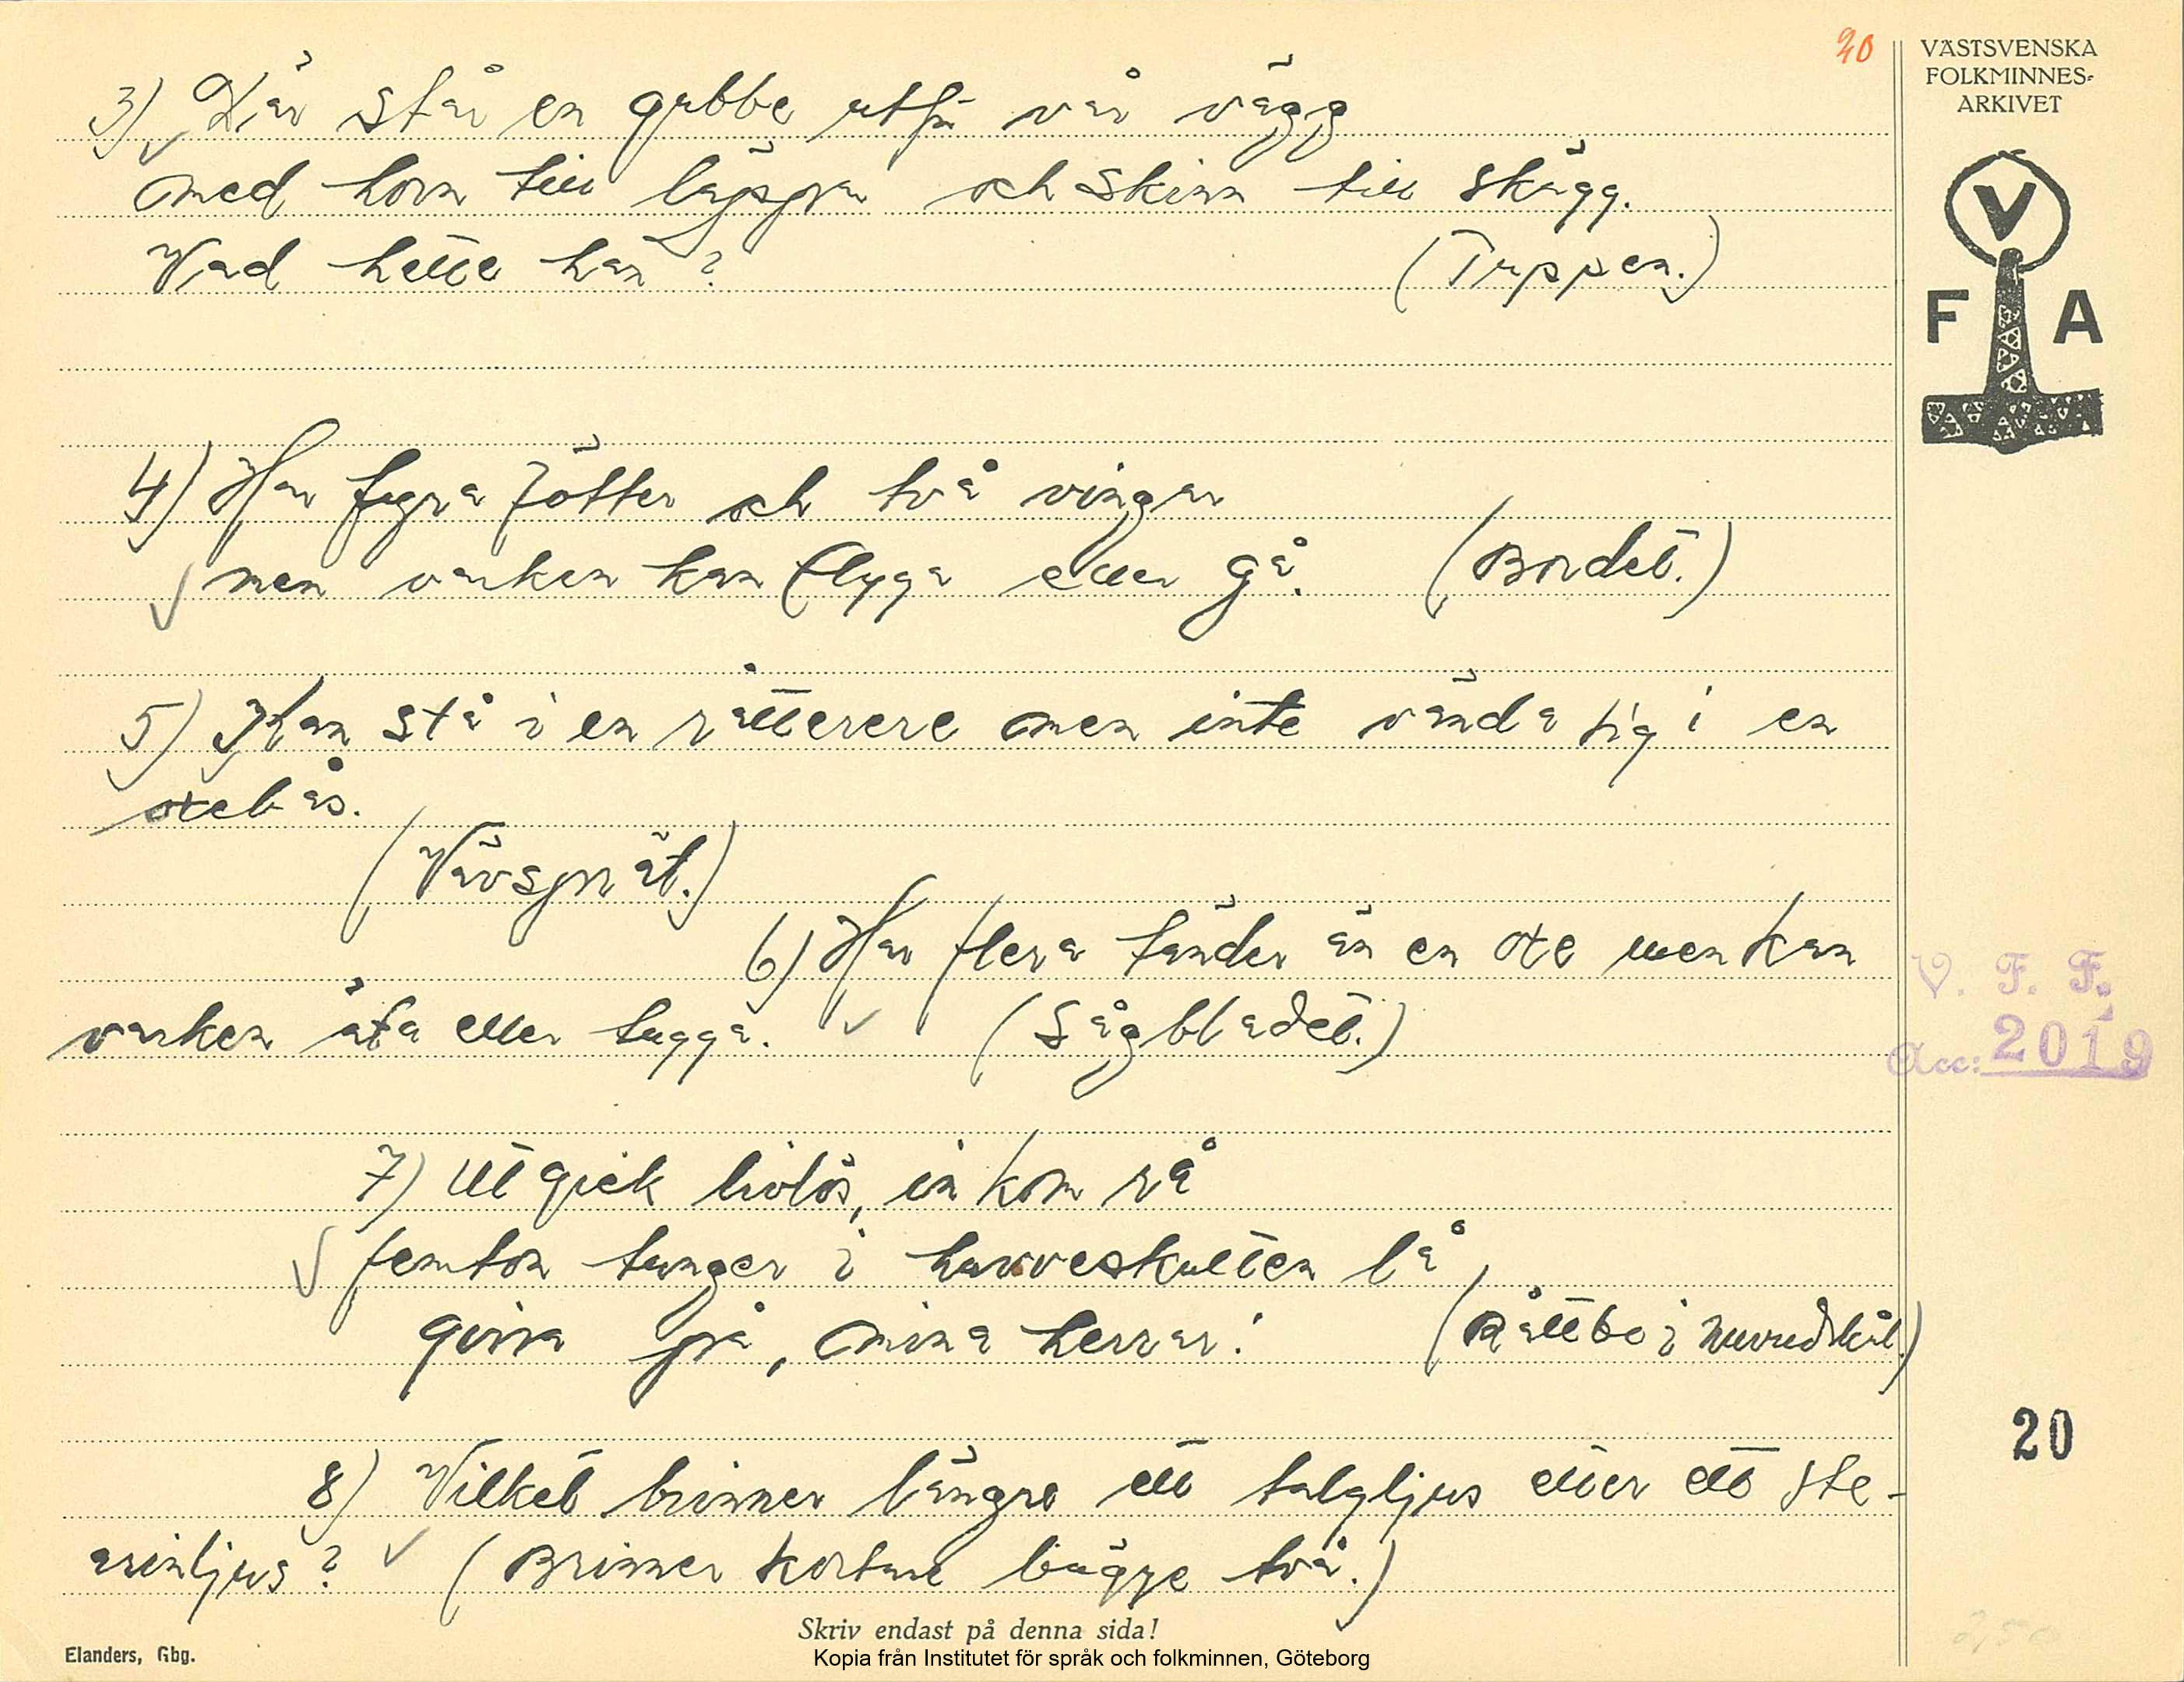 20
VÄSTSVENSKA
FOLKMINNES-
ARKIVET
V
F A
3) Där står en gubbe utför vår vägg
med horn till läppar och skinn till skägg.
Vad hette han? (Tuppen.)
4) Har fyra fötter och två vingar
men varken kan flyga eller gå. (Bordet.)
5) Kan stå i en rätterere men inte vända sig i en
oxebås.
(Vävspröt.)
6) Har flera tänder än en oxe men kan
varken äta eller tugga. (Sågbladet.)
V. F. F.
Acc: 2019
7) Ut gick livlös, in kom rå
femton tunger i huvveskulten lå,
girra på, mina herrar! (Råttbo i huvudskål.)
20
8) Vilket brinner längre ett talgljus eller ett ste-
arinljus? (Brinner kortare bägge två.)
Skriv endast på denna sida!
Elanders, Gbg.
Kopia från Institutet för språk och folkminnen, Göteborg